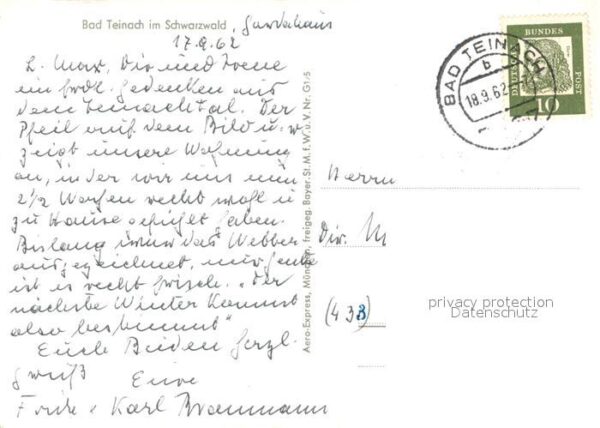 Bad Teinach im Schwarzwald, Gardehaus
17.9.62
L. Max, Dir und Irene
ein frdl. Gedenken aus
dem Teinachtal. Der
Pfeil auf dem Bild
zeigt unsere Wohnung
an, in der wir uns nun
2 1/2 Wochen recht wohl u
zu Hause gefühlt haben.
Bislang war das Wetter
ausgezeichnet, nur heute
ist es recht frisch. „Der
nächste Winter kommt
also bestimmt"
Euch Beiden herzl.
Gruß Eure
Karl Braumann
Aero-Express, München, freigeg. Bayer. St. M. f. W. u. V. Nr. G1/5
DEUTSCHE
BUNDES
POST
10
BAD TEINACH
b
18.9.62
Herrn
Dir. M
(433)
privacy protection
Datenschutz